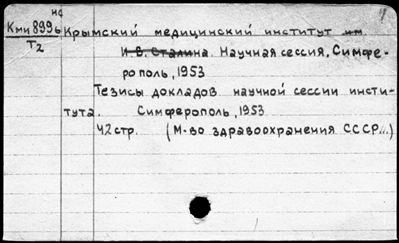 нд
Кми 8996
Т2
Крымский медицинский институт им.
И.В. Сталина. Научная сессия, Симфе-
рополь, 1953
Тезисы докладов научной сессии инсти-
тута. Симферополь, 1953
42 стр. (М-во здравоохранения СССР...)